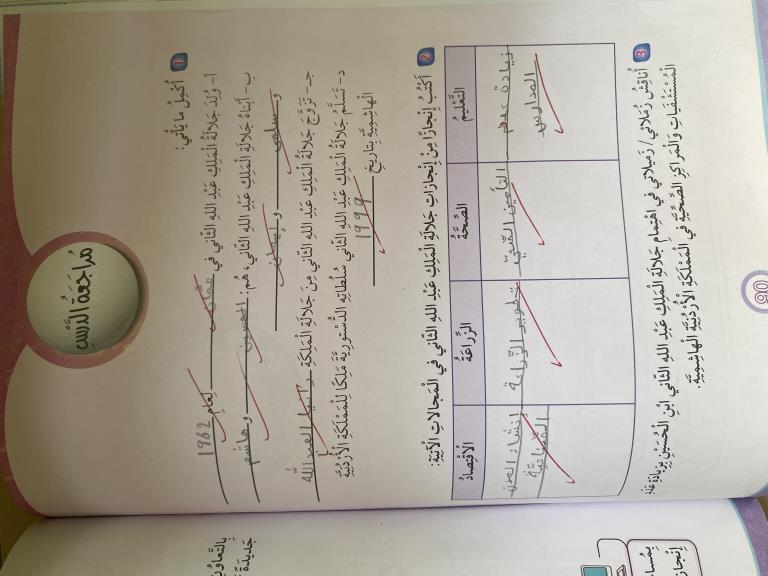 مُراجَعَةُ الدَّرْسِ
1 أُكْمِلُ ما يَأْتي:
أ- وُلِدَ جَلالَةُ الْمَلِكِ عَبْدِ اللهِ الثّاني في عمّان لِعامِ 1962
ب- أَبْناءُ جَلالَةِ الْمَلِكِ عَبْدِ اللهِ الثّاني، هُمُ: الحسين وَ هاشم
وَ سلمى وَ إيمان
جـ- تَزَوَّجَ جَلالَةُ الْمَلِكِ عَبْدِ اللهِ الثّاني مِنْ جَلالَةِ الْمَلِكَةِ رانيا العبدالله
د- تَسَلَّمَ جَلالَةُ الْمَلِكِ عَبْدِ اللهِ الثّاني سُلْطاتِهِ الدُّسْتورِيَّةَ مَلِكًا لِلْمَمْلَكَةِ الْأُرْدُنِّيَّةِ
الْهاشِمِيَّةِ بِتاريخِ 1999
2 أَكْتُبُ إِنْجازًا مِنْ إِنْجازاتِ جَلالَةِ الْمَلِكِ عَبْدِ اللهِ الثّاني في الْمَجالاتِ الْآتِيَةِ:
التَّعْليمُ الصِّحَّةُ الزِّراعَةُ الْاقْتِصادُ
زيادة عدد التأمين الصّحيّ تطوير الزّراعة إنشاء المدن
المدارس الصّناعيّة
3 أُناقِشُ زُمَلائي/ زَميلاتي في اهْتِمامِ جَلالَةِ الْمَلِكِ عَبْدِ اللهِ الثّاني ابْنِ الْحُسَيْنِ بِزِيادَةِ
الْمُسْتَشْفَياتِ وَالْمَراكِزِ الصِّحِّيَّةِ في الْمَمْلَكَةِ الْأُرْدُنِّيَّةِ الْهاشِمِيَّةِ.
90
بِالتَّعاوُنِ
جَديدَةً
إِنْجاز